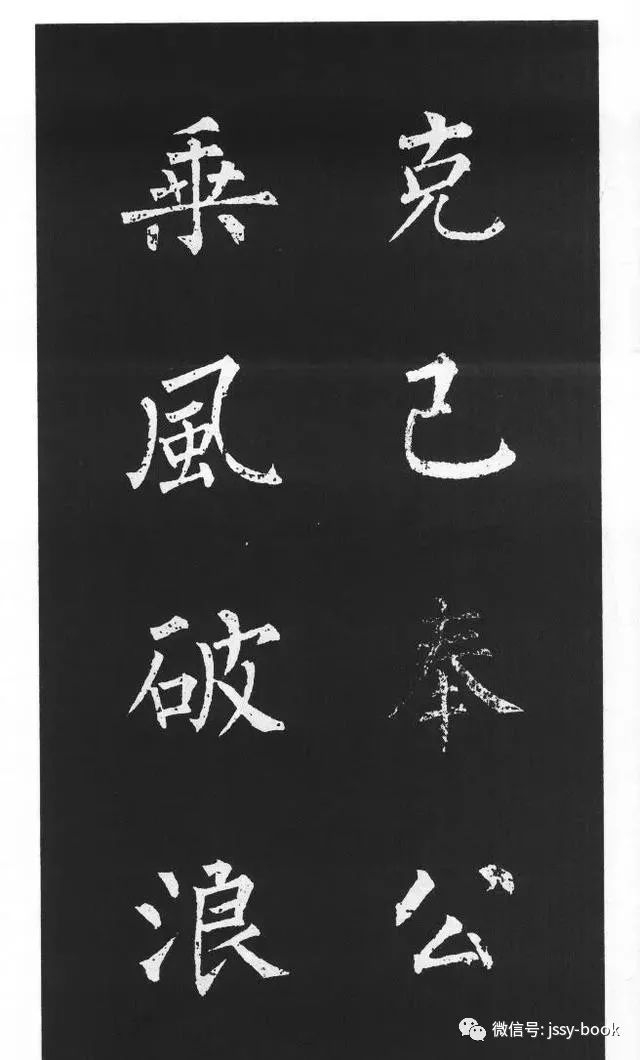 克己奉公
乘風破浪
微信号: jssy-book